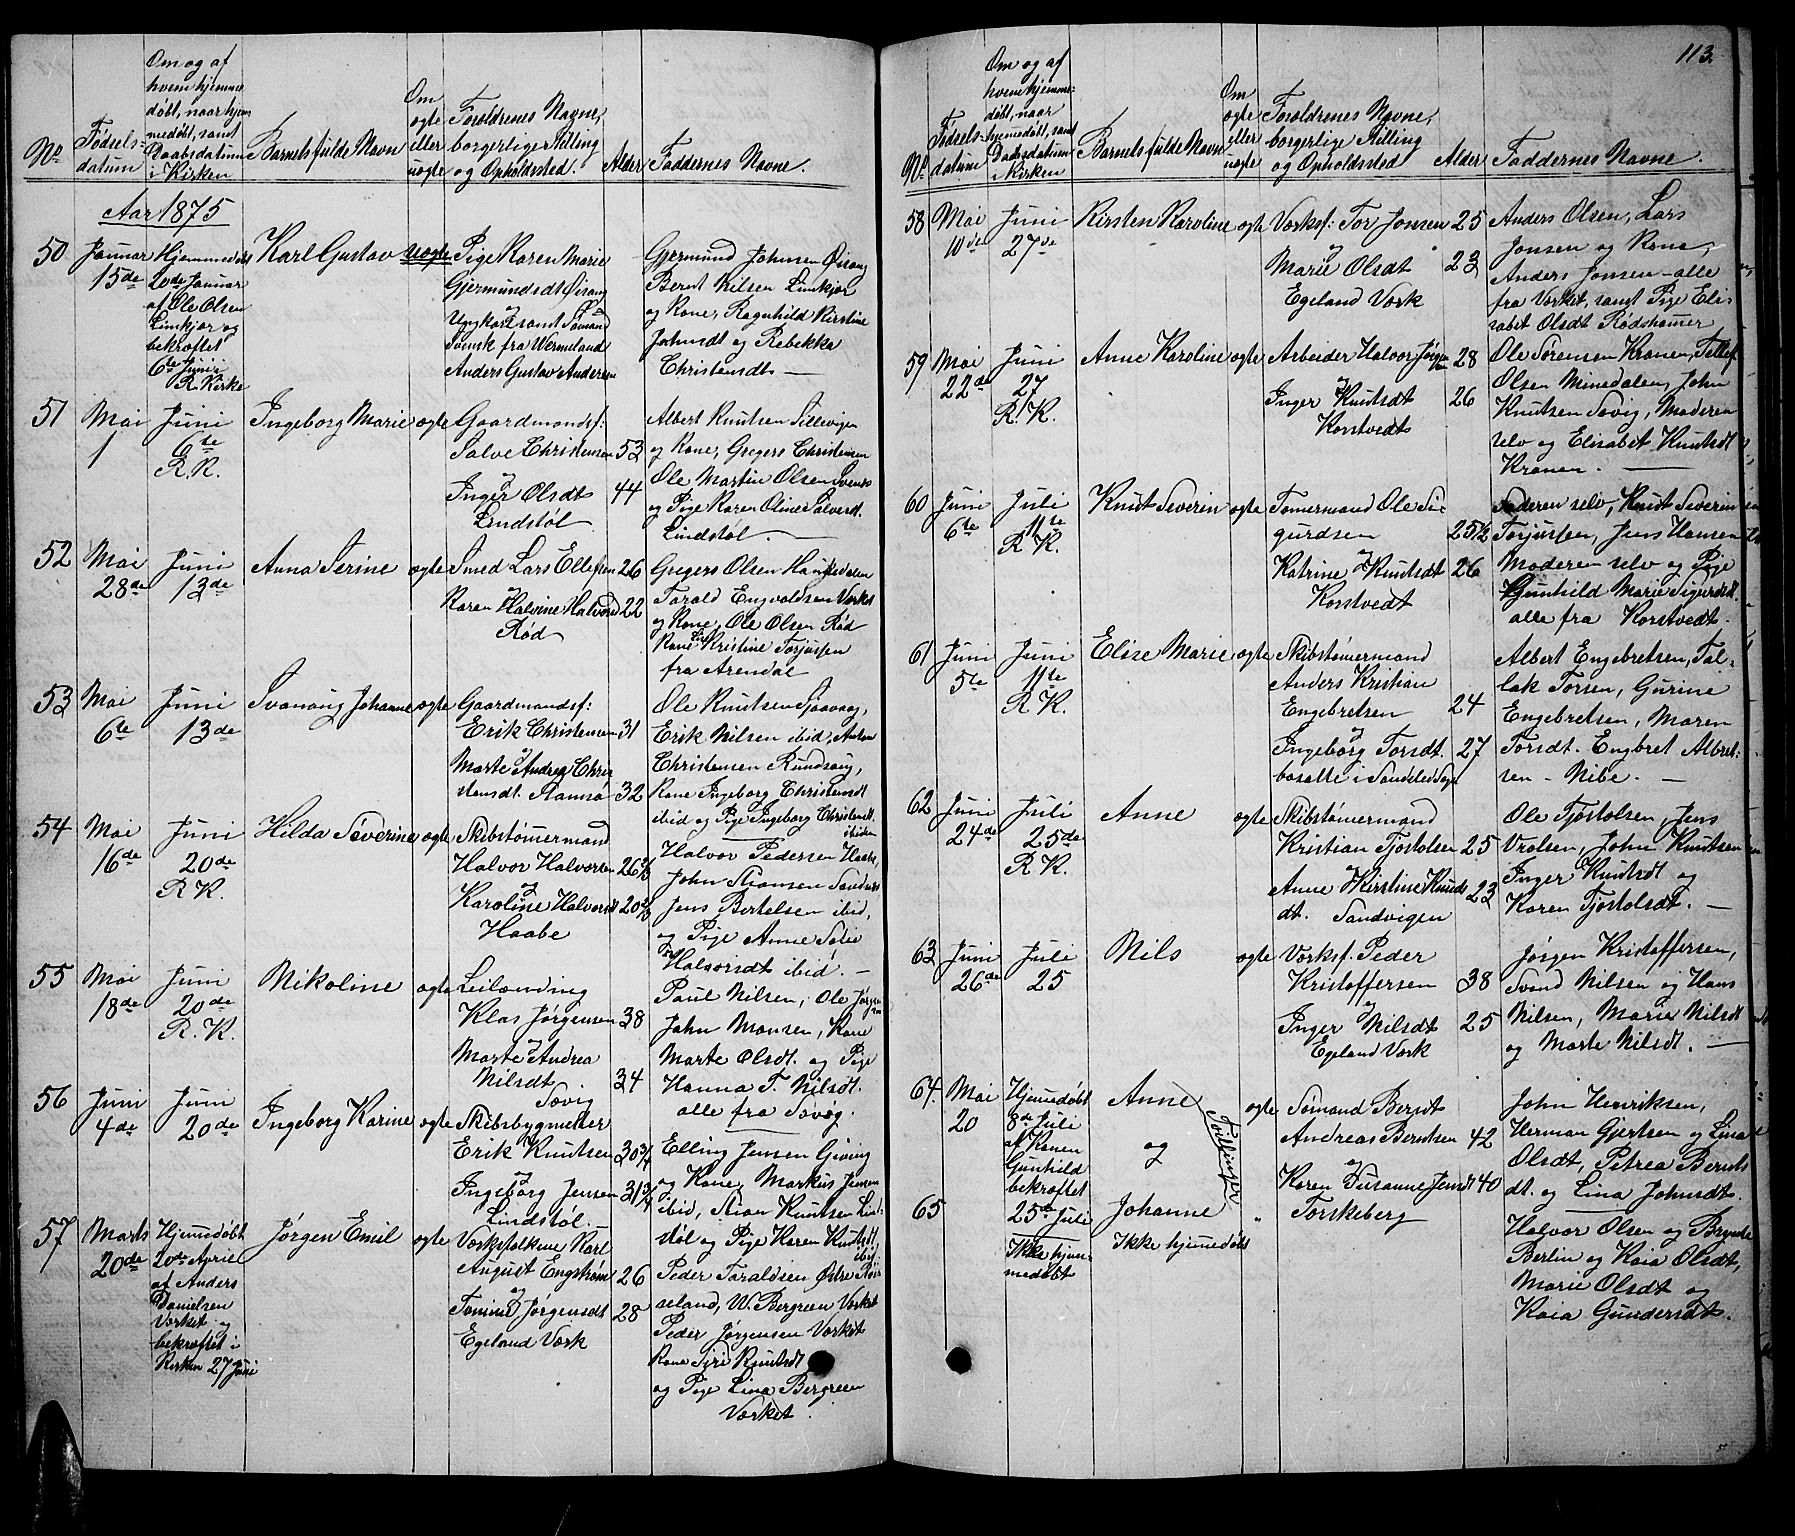 No.
Fødsels-
datum
Om og af
hvem hjemme
døbt, naar hjem
medøbt, samt
Daabsdatum
i Kirken
Barnets fulde Navn
Om
ægte
eller
uægte
Forældrenes Navne,
borgerlige Stilling
og Opholdssted.
Alder
Faddernes Navne.
Aar 1875
50
Januar
15de
Hjemmedøbt
20de Januar
af Ole Olsen
Limkjær og
bekræftet
6te Juni i
R. Kirke
Karl Gustav
uægte
Pige Karen Marie
Gjermundsdt Øisang
Ungkarl samt Sømand
Svensk fra Wermeland
Anders Gustav Andersen
Gjermund Johnsen Øisang
Bernt Nilsen Limkjær
og Kone, Ragnhild Kirstine
Johnsdt og Rebekka
Christensdt
51
Mai
1
Juni
6te
R. K.
Ingeborg Marie
ægte
Gaardmandsf:
Salve Christensen 53
og
Inger Olsdt 44
Lindstøl
Albert Knutsen Sillevigen
og Kone, Gregers Christensen
Ole Martin Olsen
og Pige Karen Oline Salvesdt.
Lindstøl.
52
Mai
28de
Juni
13de
Anna Serine
ægte
Smed Lars Ellefsen 26
og
Karen Halvine Halvorsd 22
Rød
Gregers Olsen
Tarald Engvoldsen Værket
og Kone, Ole Olsen Rød
Kone Kristine Torjussen
fra Arendal
53
Mai
6te
Juni
13de
Svanaug Johanne
ægte
Gaardmandsf:
Erik Christensen 31
og
Marte Andrea Chris
tensdt. 32
Ole Knutsen
Erik Nilsen ibid,
Christensen
Kone Ingeborg Christensdt
ibid og Pige Ingeborg Christensdt.
ibiden
54
Mai
16de
Juni
20de
R. K.
Hilda Severine
ægte
Skibstømermand
Halvor Halvorsen 26 2/3
og
Karoline Halvorsdt 20 2/3
Haabe
Halvor Pedersen
John
Jens Bertelsen ibid,
og Pige Anne
Halvorsdt ibid.
55
Mai
18de
Juni
20de
R. K.
Nikoline
ægte
Leilænding
Klas Jørgensen 38
og
Marte Andrea
Nilsdt 34
Søvig
Paul Nilsen, Ole Jørgen
sen
John Monsen, Kone
Marte Olsdt. og Pige
Hanna T. Nilsdt.
alle fra
56
Juni
4de
Juni
20de
Ingeborg Karine
ægte
Skibsbygmester
Erik Knutsen 30 3/4
og
Ingeborg Jensen 31 3/4
Lindstøl.
Elling Jensen Giving
og Kone, Markus Jensen
ibid, Stian Knutsen Lind-
støl og Pige Karen Knutsdt,
ibid
57
Marts
20de
Hjemmedøbt
20de April
af Anders
Danielsen
Værket og
bekræftet i
Kirken 27 Juni
Jørgen Emil
ægte
Værksfolkene Karl
August Engstrøm 26
og
Tomine Jørgensdt 28
Egeland Værk
Peder Taraldsen Østre
seland, W. Bergreen Værket
Peder Jørgensen Værket
Kone Siri Knutsdt
og Pige Lina Bergreen
Værket.
113.
No.
Fødsels-
datum
Om og af
hvem hjemme-
døbt, naar
hjemmedøbt, samt
Daabsdatum
i Kirken
Barnets fulde Navn
Om
ægte
eller
uægte
Forældrenes Navne,
borgerlige Stilling
og Opholdssted
Alder
Faddernes Navne.
58
Mai
10de
Juni
27de
Kirsten Karoline
ægte
Værksf: Tor Jonsen 25
og
Marie Olsdt 23
Egeland Værk
Anders Olsen, Lars
Jonsen og Kone,
Anders Jonsen - alle
fra Værket, samt Pige Eli-
sabet Olsdt
59
Mai
22de
Juni
27
R. K.
Anne Karoline
ægte
Arbeider Halvor Jørgen
sen 28
og
Inger Knutsdt 26
Korstvedt
Ole Sørensen Kranen, Tellef
Olsen Minedalen, John
Knutsen Søvig, Moderen
selv og Elisabet Knutsdt
Kranen.
60
Juni
6te
Juli
11te
R K.
Knut Severin
ægte
Tømermand Ole Si-
gurdsen 25 1/2
og
Katrine Knutsdt 26
Korstvedt
Faderen selv, Knut Severin
Torjussen, Jens Hansen
Moderen selv og Pige
Gunhild Marie Sigurdsdt.
alle fra Korstvedt.
61
Juni
5te
Juli
11te
R K.
Elise Marie
ægte
Skibstømermand
Anders Kristian
Engebretsen 24
og
Ingeborg Torsdt. 27
bosatte i Søndeled Sogn
Albert Engebretsen, Tal-
lak Torsen, Gurine
Engebretsen, Maren
Torsdt. Engbret Albret-
sen - Nibe.
62
Juni
24de
Juli
25de
R K.
Anne
ægte
Skibstømermand
Kristian Tjøstolsen 25
og
Anne Kirstine Knuds 23
dt. Sandvigen
Ole Tjøstolsen, Jens
Vrolsen, John Knudtsen
Inger Knutsdt og
Karen Tjøstolsdt.
63
Juni
26de
Juli
25
Nils
ægte
Værksf. Peder
Kristoffersen 38
og
Inger Nilsdt 25
Egeland Værk
Jørgen Kristoffersen,
Svend Nilsen og Hans
Nilsen, Marie Nilsdt
og Marte Nilsdt.
64.
Mai
20
Hjemmedøbt
8de Juli
af Konen
Gunhild
bekræftet
25de Juli
Anne
og
Tvillinger
ægte
Sømand Berndt
Andreas Berntsen 42
og
Karen Susanne Jensdt 40
Torskeberg
John Henriksen,
Herman Gjertsen og Lina
Olsdt, Petrea Bernts
dt. og Lina Johnsdt.
65
Ikke hjem-
medøbt
Johanne
Ikke hjemmedøbt
"
Halvor Olsen og
Berlin og Kaia Olsdt,
Marie Olsdt og
Kaia Gundersdt.